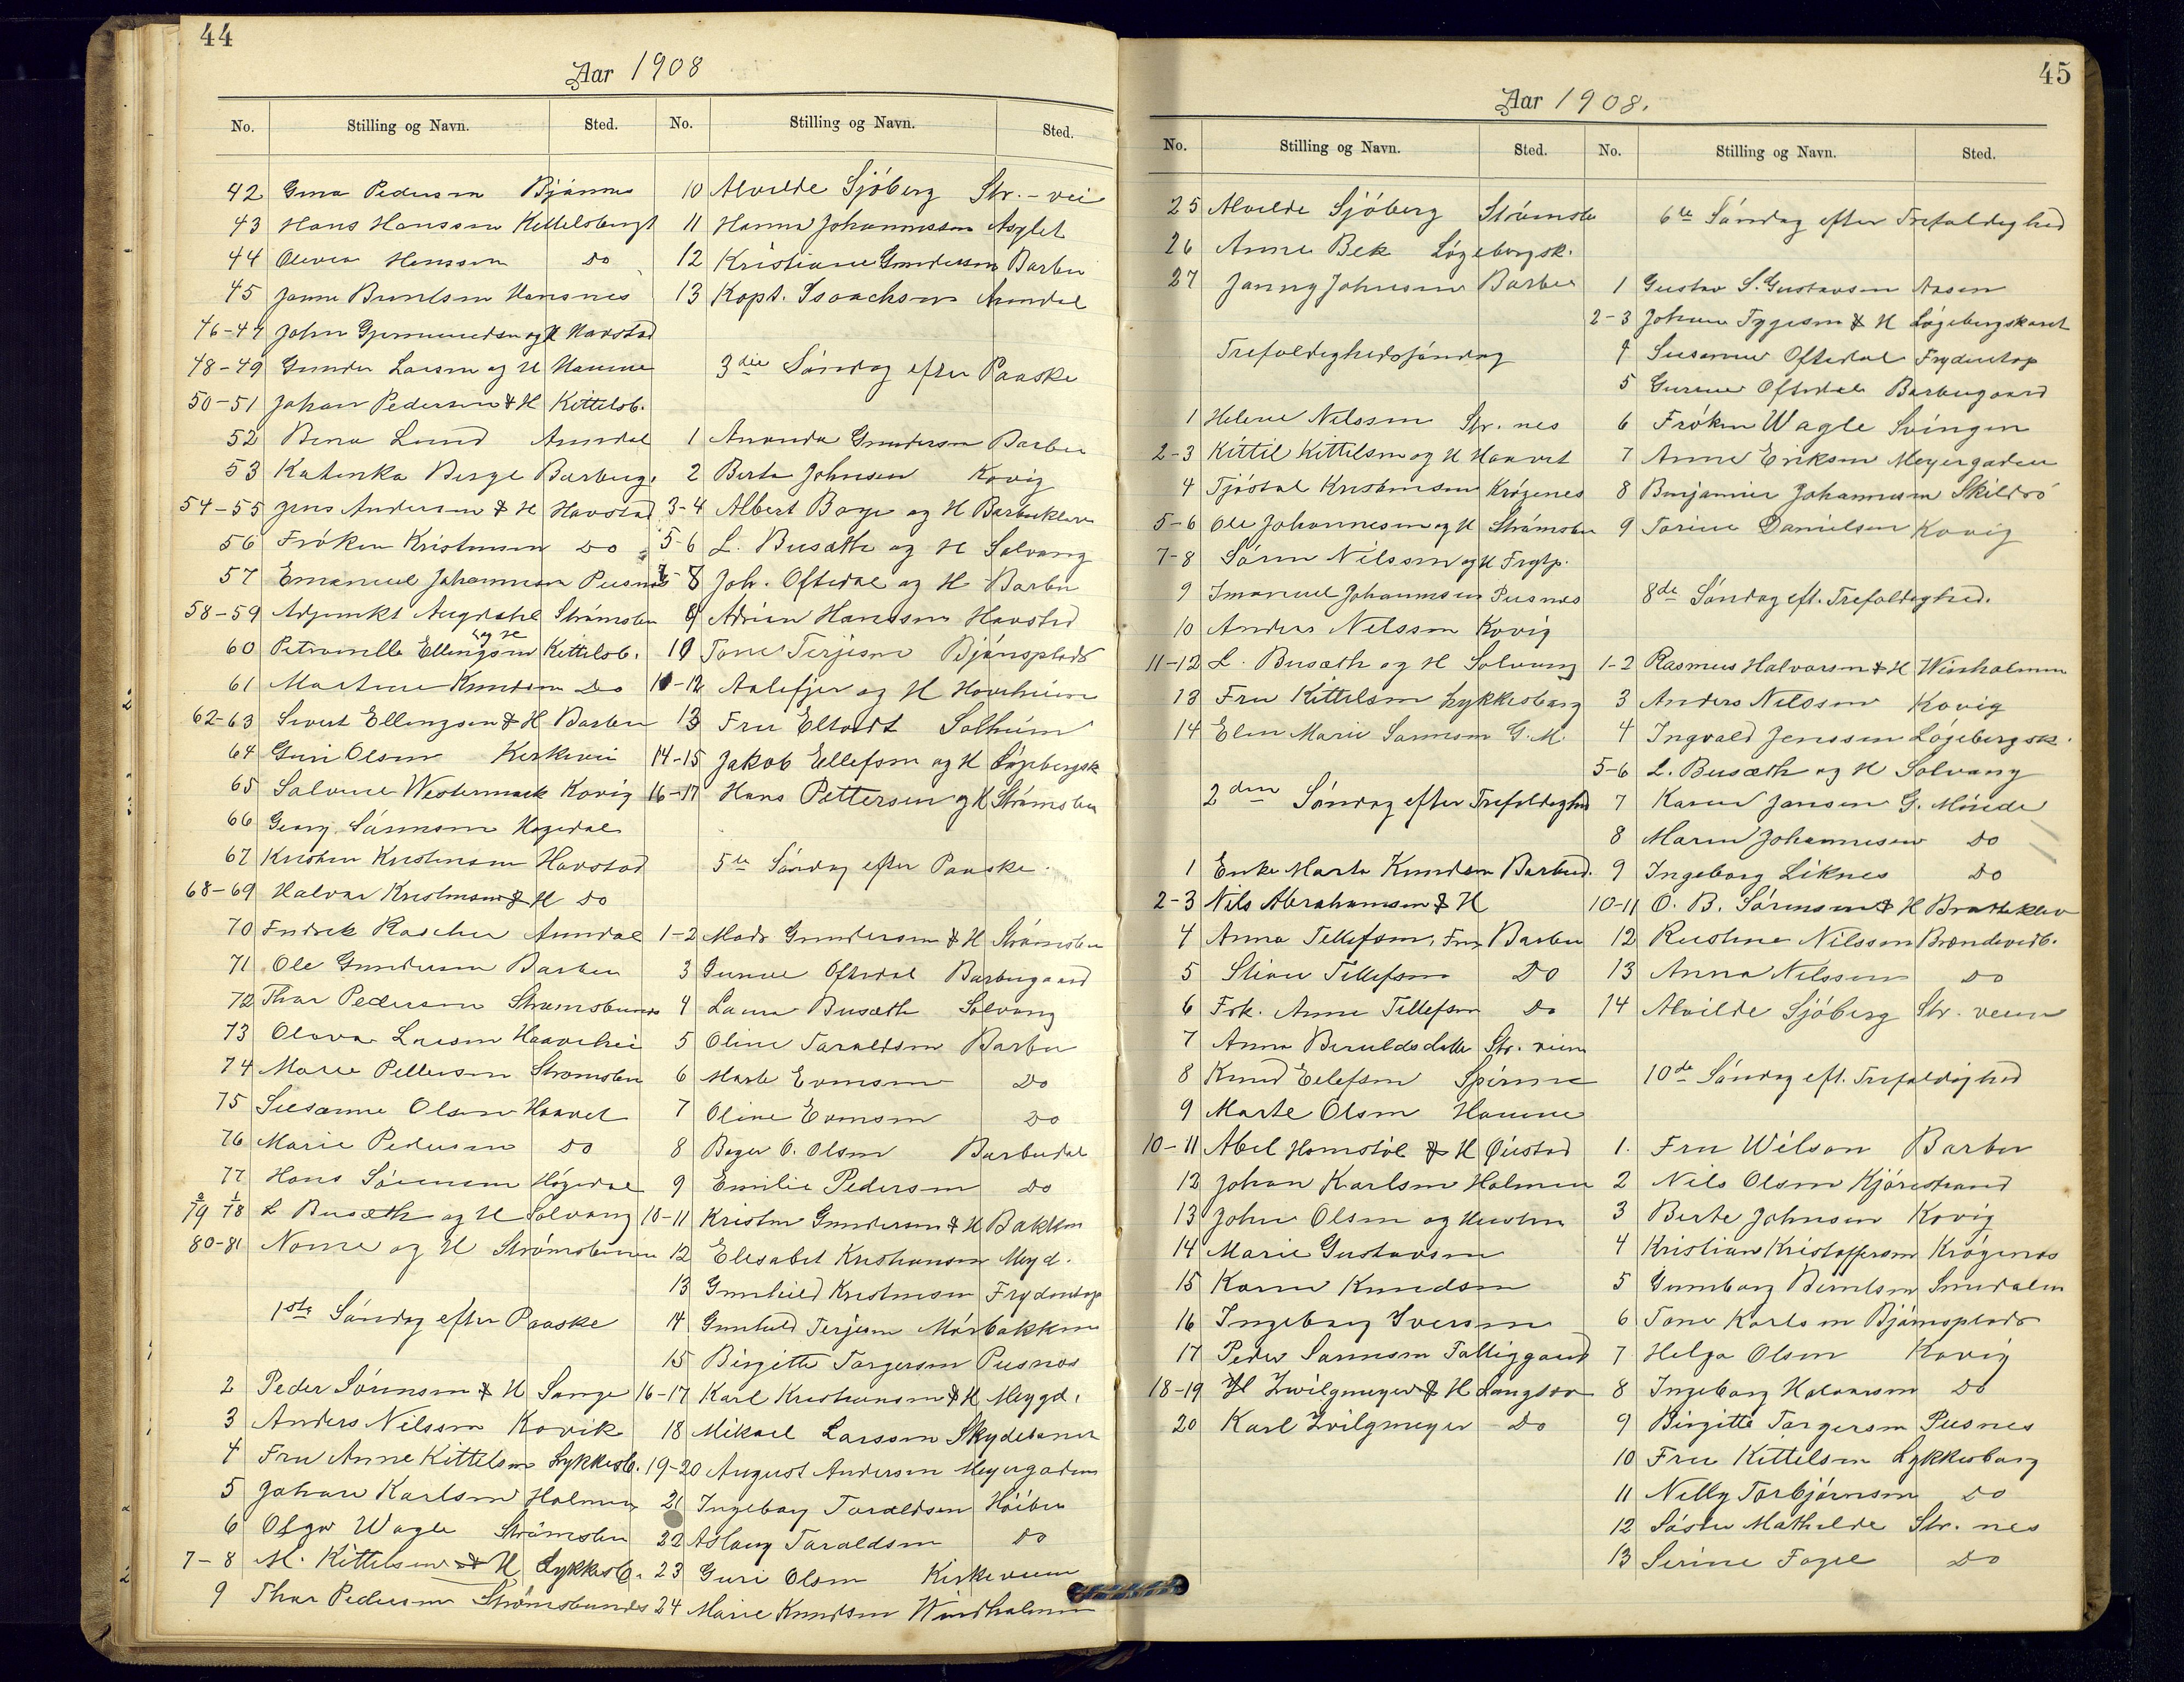 44
Aar 1908
No. Stilling og Navn. Sted. No. Stilling og Navn. Sted.
42 Gina Pedersen Bjønnes
43 Hans Hansson Kittelsbugt
44 Olevia Hansson Do
45 Janna Berntsen Hansnes
46-47 John Gjermundsen og H Havstad
48-49 Gunder Larsen og H Hamne
50-51 Johan Pedersen & H Kittelsb.
52 Bina Lund Arendal
53 Katinka Berge Barbug.
54-55 Jens Andersen & H Havstad
56 Frøken Kristensen Do
57 Emanuel Johannesen Pusnes
58-59 Adjunkt Augdahl og H Strømsbu
60 Petronelle Ellingsen Kittelsb.
61 Martine Knudsen Do
62-63 Sivert Ellingsen & H Barbu
64 Guri Olsen Kirkevei
65 Salvine Westermark Kovig
66 Georg Sørensen Høgedal
67 Kristen Kristensen Havstad
68-69 Halvor Kristensen & H Do
70 Fredrik Rascher Arendal
71 Ole Gundersen Barbu
72 Thor Pedersen Strømsbunes
73 Olava Larsen Haavehei
74 Marie Pettersen Strømsbu
75 Susanne Olsen Haavet
76 Marie Pedersen Do
77 Hans Sørensen Høgedal
79 78 L Busæth og H Solvang
80-81 Nome og H Strømsbuveien
1ste Søndag efter Paaske
2 Peder Sørensen & H Sange
3 Anders Nilssen Kovik
4 Fru Anne Kittelsen Lykkesb.
5 Johan Karlsen Holmen
6 Olga Wagle Strømsbu
7-8 M. Kittelsen & H Lykkesb.
9 Thor Pedersen Strømsbunes
10 Alvilde Sjøberg Str.-vei
11 Hanna Johannessen Asylet
12 Kristiane Gundersen Barbu
13 Kapt. Isaachsen Arendal
3die Søndag efter Paaske
1 Amanda Gundersen Barbu
2 Berte Johnsen Kovig
3-4 Albert Boye og H Barbuklev
5-6 L. Busæth og H Solvang
7-8 Joh. Oftedal og H Barbu
9 Adrian Hansson Havsted
10 Tone Terjesen Bjønsplads
11-12 Aalefjer og H Hoveheien
13 Fru Eltvedt Solheim
14-15 Jakob Ellefsen og H Løgebergsk
16-17 Hans Pettersen og H Strømsbu
5te Søndag efter Paaske.
1-2 Mads Gundersen & H Strømsbu
3 Gunne Oftedal Barbugaard
4 Laura Busæth Solvang
5 Oline Taraldsen Barbu
6 Marte Evensen Do
7 Oline Evensen Do
8 Bager O. Olsen Barbudal
9 Emilie Pedersen Do
10-11 Kristen Gundersen & H Bakken
12 Elisabet Kristiansen Meyd.
13 Gunhild Kristensen Frydentop
14 Gunhild Terjesen Mørbakken
15 Birgitte Torgersen Pusnes
16-17 Karl Kristiansen & H Meygd.
18 Mikael Larssen Skydebanen
19-20 August Andersen Meyergaden
21 Ingeborg Taraldsen Høibu
22 Aslaug Taraldsen Do
23 Guri Olsen Kirkeveien
24 Marie Knudsen Windholmen
45
Aar 1908.
No. Stilling og Navn. Sted. No. Stilling og Navn. Sted.
25 Alvilde Sjøberg Strømsbu
26 Anne Bek Løgebergsk.
27 Janny Johnsen Barbu
Trefoldighedssøndag
1 Helene Nilssen Str. nes
2-3 Kittil Kittilsen og H Haavet
4 Tjøstol Kristensen Krøgenes
5-6 Ole Johannesen og H Strømsbu
7-8 Søren Nilssen og H Frytp.
9 Imanuel Johannesen Pusnes
10 Anders Nilssen Kovig
11-12 L. Busæth og H Solvang
13 Fru Kittelsen Lykkesborg
14 Elen Marie Sørensen G. M.
2den Søndag efter Trefoldighed
1 Enke Marte Knudsen Barbud.
2-3 Nils Abrahamsen & H
4 Anna Tellefsen, Fru Barbu
5 Stian Tellefsen Do
6 Frk. Anne Tellefsen Do
7 Anna Beruldsdatter Str. veien
8 Knud Eilefsen Spirene
9 Marte Olsen Hamne
10-11 Abel Homstøl & H Øiestad
12 Johan Karlsen Holmen
13 John Olsen og Hustru
14 Marie Gustavsen
15 Karen Knudsen
16 Ingeborg Iversen
17 Peder Sørensen Fattiggaard
18-19 H Zwilgmeyer & H Langsæ
20 Karl Zwilgmeyer Do
6te Søndag efter Trefoldighed
1 Gustav S. Gustavsen Aasen
2-3 Johan Tygesen & H Løgebergskaret
4 Susanne Oftedal Frydentop
5 Gunne Oftedal Barbugaard
6 Frøken Wagle Svingen
7 Anne Eriksen Meyergaden
8 Benjamin Johannesen Skilsø
9 Torine Danielsen Kovig
8de Søndag eft. Trefoldighed.
1-2 Rasmus Halvorsen & H Windholmen
3 Anders Nilssen Kovig
4 Ingvald Jenssen Løgebergsk.
5-6 L. Busæth og H Solvang
7 Karen Jansen G. Minde
8 Maren Johannesen Do
9 Ingeborg Liknes Do
10-11 O. B. Sørensen & H Bratteklev
12 Kristine Nilssen Brændevedb.
13 Anna Nilssen Do
14 Alvilde Sjøberg Str. veien
10de Søndag eft. Trefoldighed
1. Fru Wilson Barbu
2 Nils Olsen Kjørestrand
3 Berte Johnsen Kovig
4 Kristian Kristoffersen Krøgenes
5 Gunnborg Berntsen Smedalen
6 Tone Karlsen Bjønsplads
7 Helga Olsen Kovig
8 Ingeborg Halvorsen Do
9 Birgitte Torgersen Pusnes
10 Fru Kittelsen Lykkesborg
11 Nilly Torbjørnsen Do
12 Søster Mathilde Str. nes
13 Serine Fagel Do